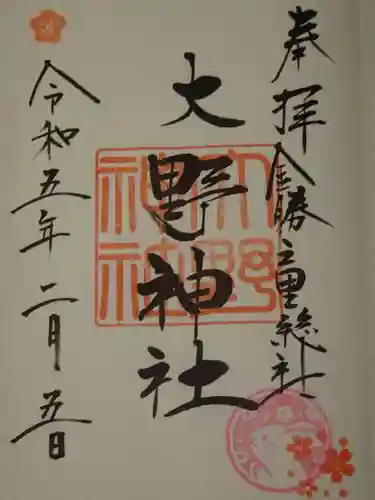 奉拝 金勝童総社
大野神社
大野神社
令和五年二月五日